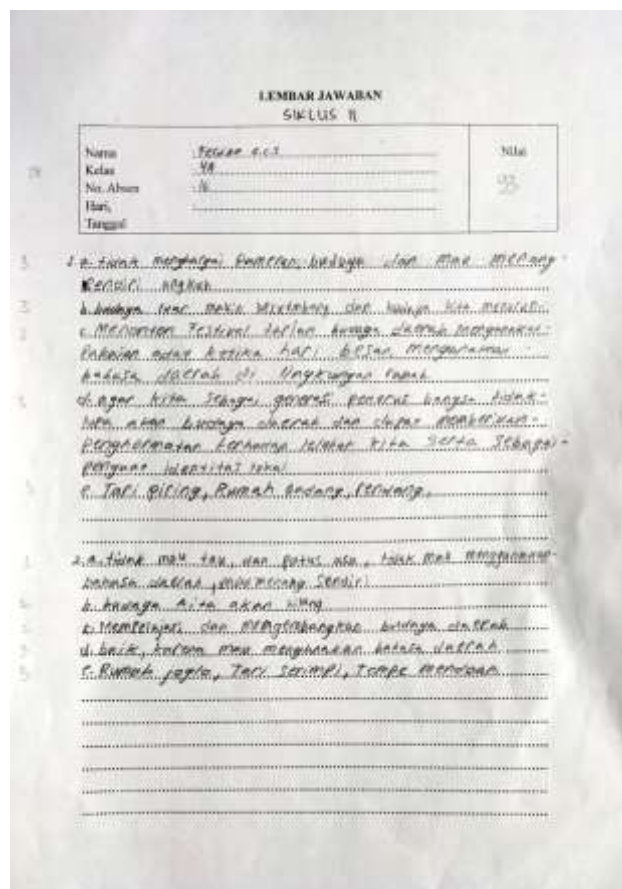 LEMBAR JAWABAN
SIKLUS II
Nama
Kelas 4A
No. Absen 16
Hari,
Tanggal
Nilai
93
1. a. tidak menghargai Pameran budaya dan mau menang
sendiri
b. budaya luar makin dan budaya kita
c. Menonton Festival tarian budaya daerah
Pakaian adat ketika hari besar
bahasa daerah di lingkungan
d. agar kita sebagai generasi penerus bangsa tidak
lupa akan budaya daerah dan dapat memberikan
Penghormatan terhadap leluhur kita serta sebagai
identitas lokal
e. Tari piring, Rumah gadang, rendang,
2. a. tidak mau tau, dan putus asa, tidak mau menggunakan
bahasa daerah, mau menang sendiri
b. budaya kita akan hilang
c. Mempelajari dan mengembangkan budaya daerah
d. baik, karena mau menggunakan bahasa daerah
e. Rumah joglo, Tari serimpi, Tempe mendoan